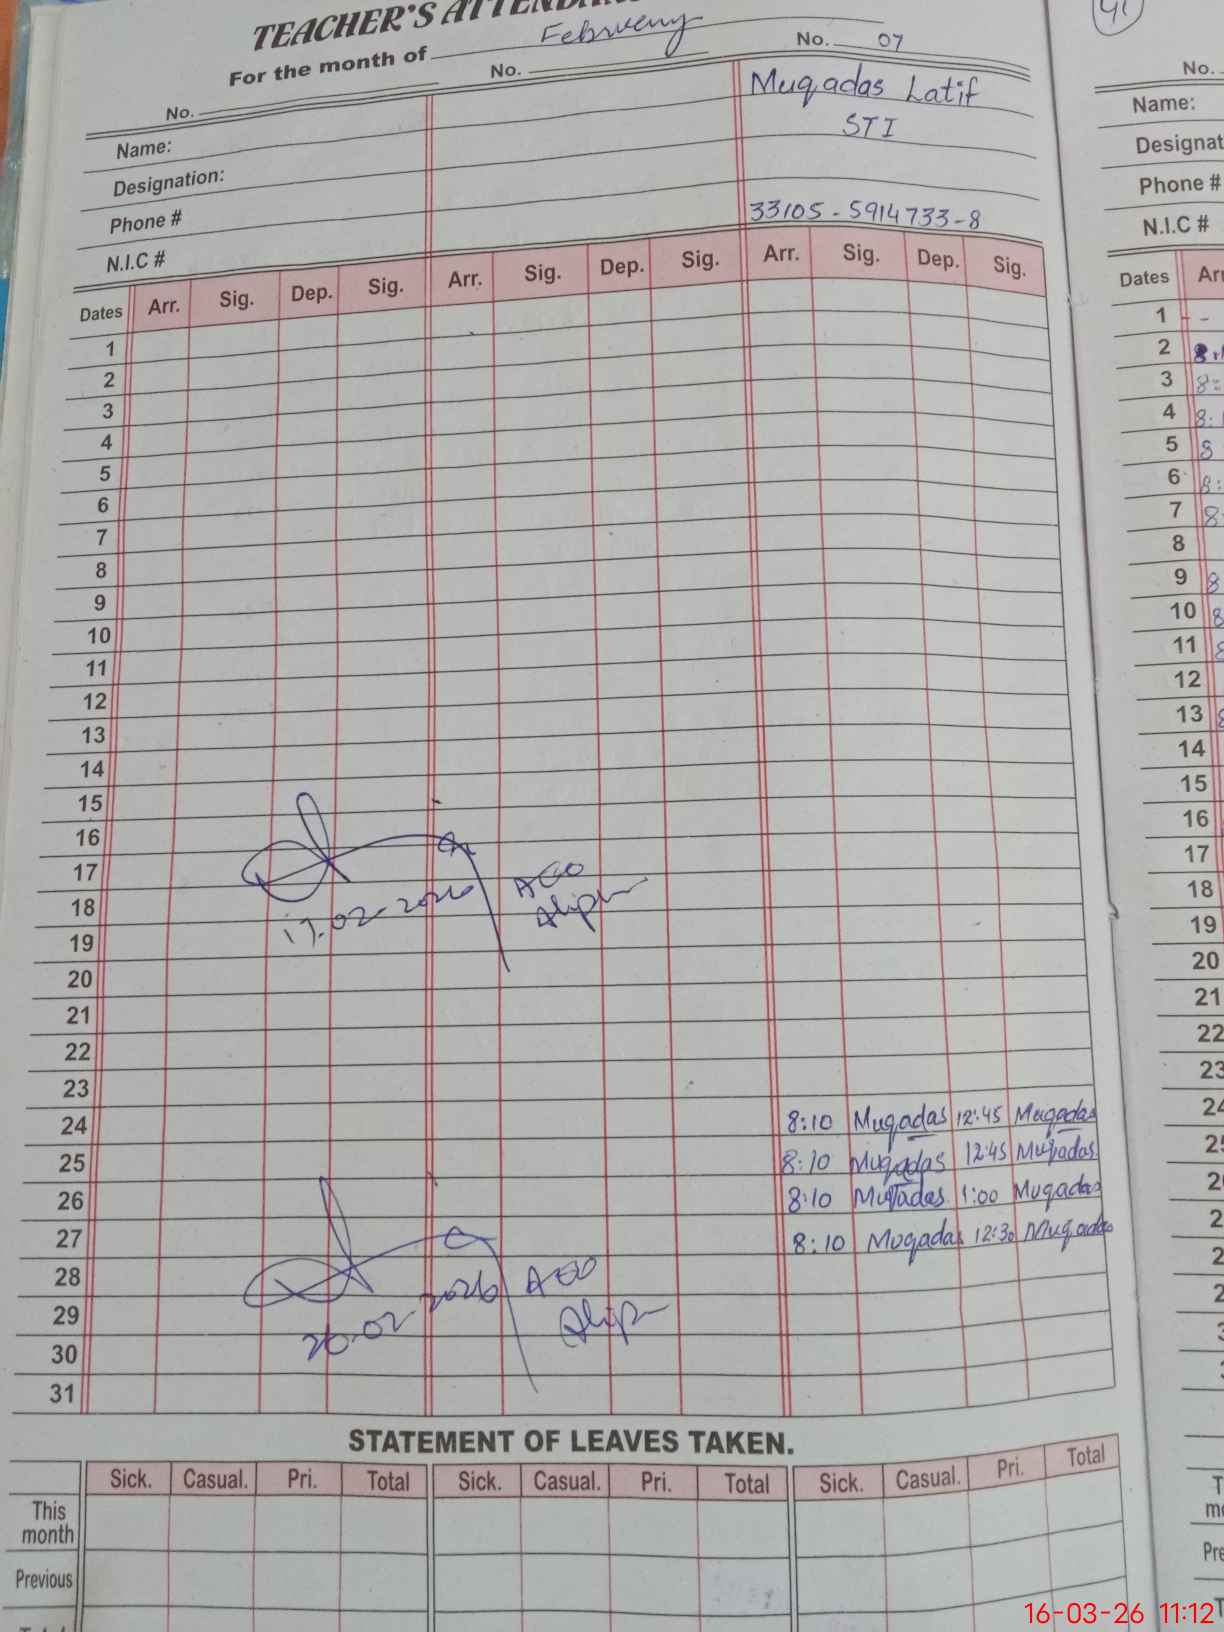 TEACHER'S
For the month of Februeny
No. No. No. 07
Name: Muqadas Latif
Designation: STI
Phone #
N.I.C # 33105-5914733-8
Dates Arr. Sig. Dep. Sig. Arr. Sig. Dep. Sig. Arr. Sig. Dep. Sig.
1
2
3
4
5
6
7
8
9
10
11
12
13
14
15
16
17
18
19
20
21
22
23
24 8:10 Muqadas 12:45 Muqadas
25 8:10 Muqadas 12:45 Muqadas
26 8:10 Muqadas 1:00 Muqadas
27 8:10 Muqadas 12:30 Muqadas
28
29
30
31
17.02-2026
AEO
26.02-2026
AEO
STATEMENT OF LEAVES TAKEN.
Sick. Casual. Pri. Total Sick. Casual. Pri. Total Sick. Casual. Pri. Total
This
month
Previous
41
No.
Name:
Phone #
N.I.C #
Dates
1 -
2
3
4
5 8
6
7
8
9 8
10 8
11 8
12
13 8
14
15
16
17
18
19
20
21
22
23
16-03-26 11:12